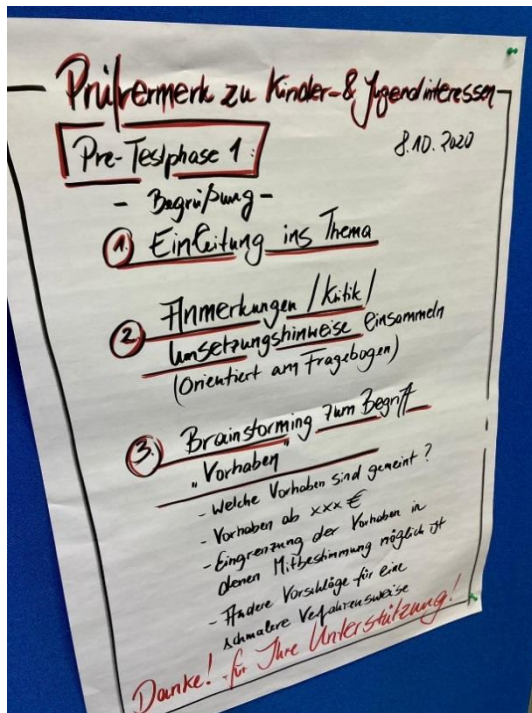 Prüfvermerk zu Kinder- & Jugendinteressen
8.10.2020
Pre-Testphase 1:
- Begrüßung -
1. Einleitung ins Thema
2 Anmerkungen / Kritik /
Umsetzungshinweise einsammeln
(Orientiert am Fragebogen)
3. Brainstorming zum Begriff
"Vorhaben"
- Welche Vorhaben sind gemeint?
- Vorhaben ab xxx €
- Eingrenzung der Vorhaben in
denen Mitbestimmung möglich ist
- Andere Vorschläge für eine
schmalere Verfahrensweise
Danke! für Ihre Unterstützung!